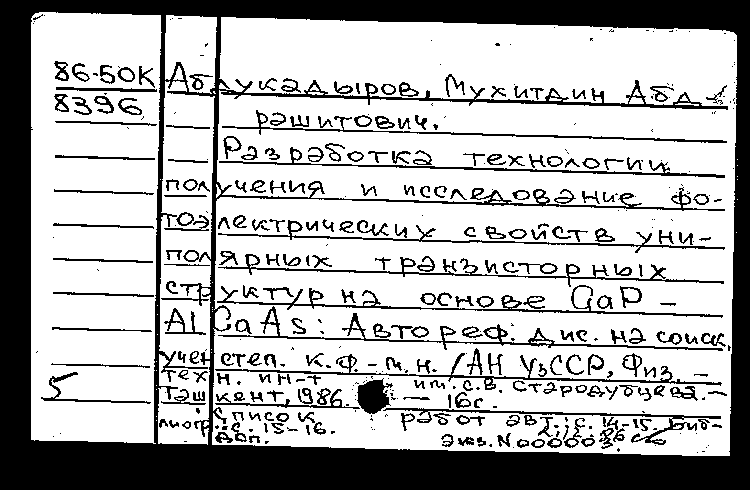 86-50К Абдукадыров, Мухитдин Абд-
8396 рашитович.
Разработка технологии
получения и исследование фо-
тоэлектрических свойств уни-
полярных транзисторных
структур на основе GaP -
AlGaAs: Автореф. дис. на соиск.
учен степ. к.ф.-м.н. /АН УзССР, Физ. -
техн. ин-т им. С.В. Стародубцева. -
5 Ташкент, 1986. — 16с.
Список работ авт.: с. 14-15. Биб-
лиогр.: с. 15-16.
Доп. Экз. N000003.